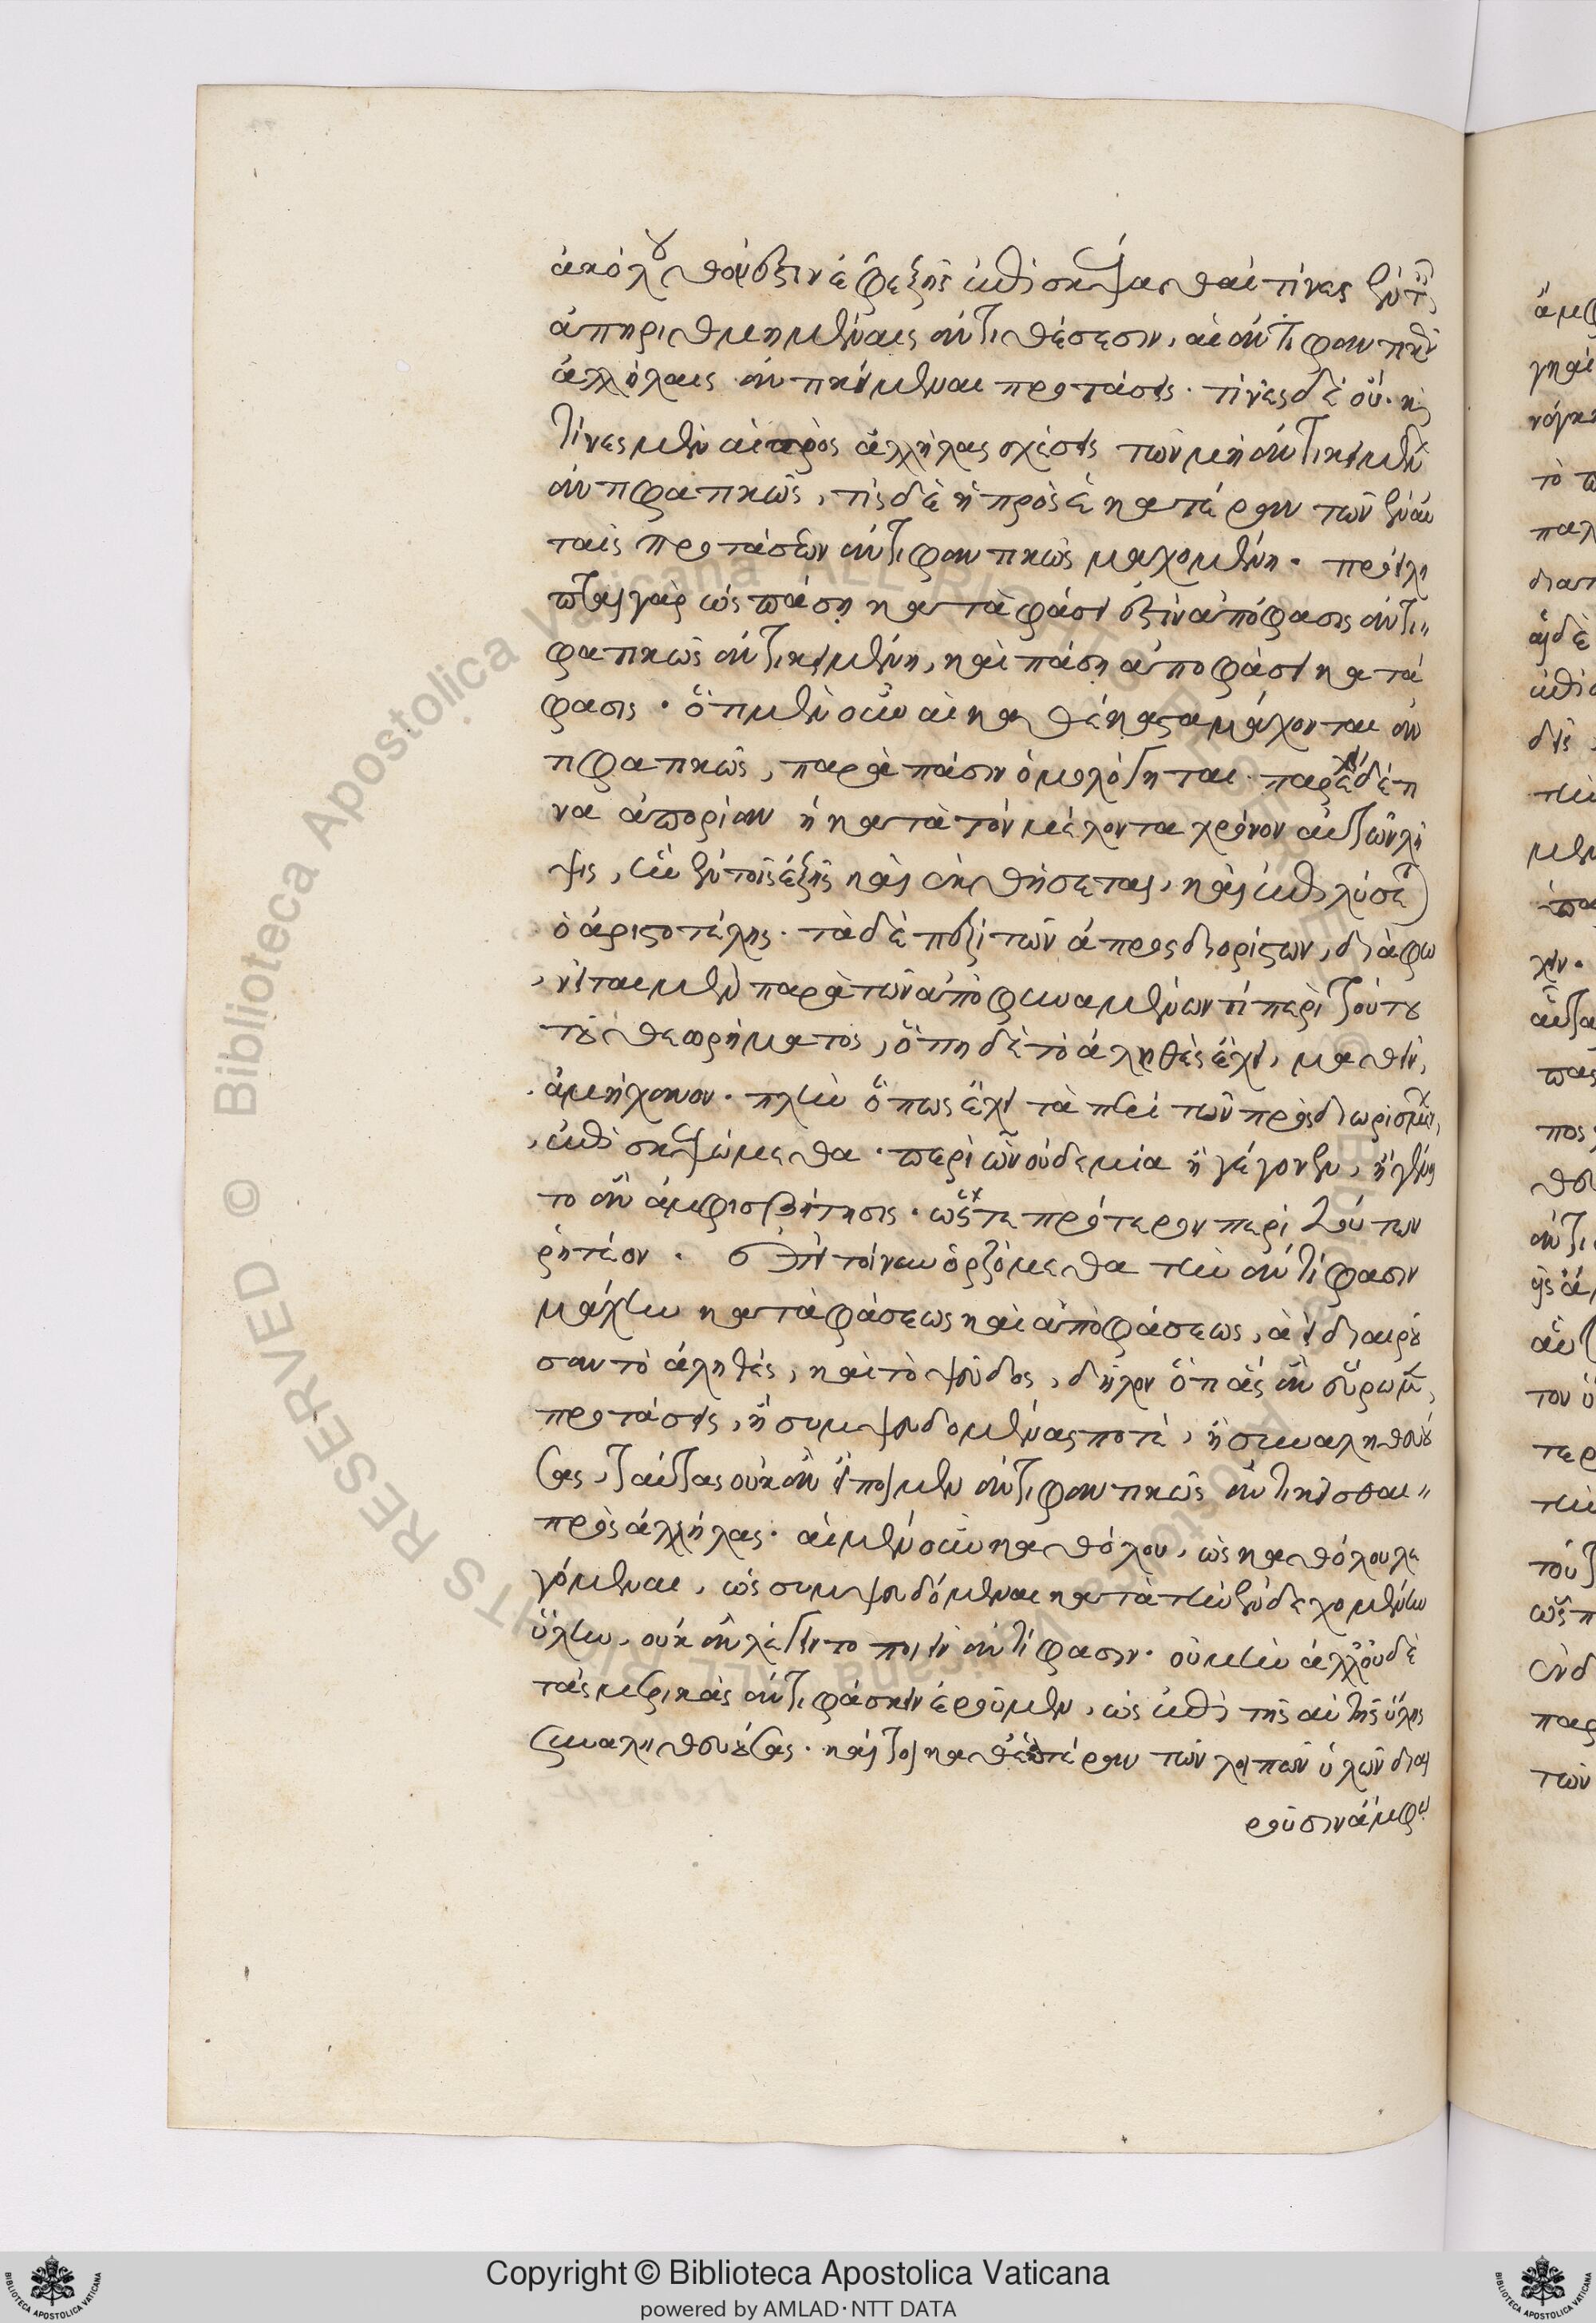 ἀκόλουθόν ἐστιν ἐφεξῆς ἐπισκέψασθαι τίνες ἐν ταῖς
ἀπηριθμημέναις ἀντιθέσεσιν, αἱ ἀντιφατικῶς
ἀλλήλαις ἀντικείμεναι προτάσεις. τίνες δὲ οὔ. καὶ
τίνες μὲν αἱ πρὸς ἀλλήλας σχέσεις τῶν μὴ ἀντικειμένων
ἀντιφατικῶς, τίς δὲ ἡ πρὸς ἑκατέραν τῶν ἐν αὐ
ταῖς προτάσεων ἀντιφατικῶς μαχομένη.
γὰρ ὡς πάσῃ καταφάσει ἐστὶν ἀπόφασις ἀντι
φατικῶς ἀντικειμένη, καὶ πάσῃ ἀποφάσει κατά
φασις. ὅτι μὲν οὖν αἱ καθέκαστα μάχονται ἀν
τιφατικῶς, παρὰ πᾶσιν ὡμολόγηται. παρέχει δέ τι
να ἀπορίαν ἡ κατὰ τὸν μέλλοντα χρόνον αὐτῶν λῆ
ψις, ἣν ἐν τοῖς ἑξῆς καὶ ἐκθήσεται, καὶ ἐπιλύσεται
ὁ ἀριστοτέλης. τὰ δὲ περὶ τῶν ἀπροσδιορίστων, διαφω
νεῖται μὲν παρὰ τῶν ἀποφηναμένων τι περὶ τούτου
τοῦ θεωρήματος, ὅπη δὲ τὸ ἀληθὲς ἔχει, μαθεῖν,
ἀμήχανον. πλὴν ὅπως ἔχει τὰ περὶ τῶν προσδιωρισμένων,
ἐπισκεψώμεθα. περὶ ὧν οὐδεμία ἢ γέγονεν, ἢ γένοι
το ἂν ἀμφισβήτησις. ὥστε πρότερον περὶ τούτων
ῥητέον. ἐπεὶ τοίνυν ὁριζόμεθα τὴν ἀντίφασιν
μάχην καταφάσεως καὶ ἀποφάσεως, ἀεὶ διαιροῦ
σαν τὸ ἀληθὲς, καὶ τὸ ψεῦδος, δῆλον ὅτι ἃς ἂν εὕρωμεν
προτάσεις, ἢ συμψευδομένας ποτὲ, ἢ συναληθευού
σας, ταύτας οὐκ ἂν εἴποιμεν ἀντιφατικῶς ἀντικεῖσθαι
πρὸς ἀλλήλας. αἱ μὲν οὖν καθόλου, ὡς καθόλου λε
γόμεναι, ὡς συμψευδόμεναι κατὰ τὴν ἐνδεχομένην
ὕλην, οὐκ ἂν λέγοιντο ποιεῖν ἀντίφασιν. οὐ μὴν ἀλλ' οὐδὲ
τὰς μερικὰς ἀντιφάσκειν ἐροῦμεν, ὡς ἐπὶ τῆς αὐτῆς ὕλης
συναληθευούσας. καίτοι καθ' ἑτέραν τῶν λοιπῶν ὑλῶν διαι
ροῦσιν ἄμφω